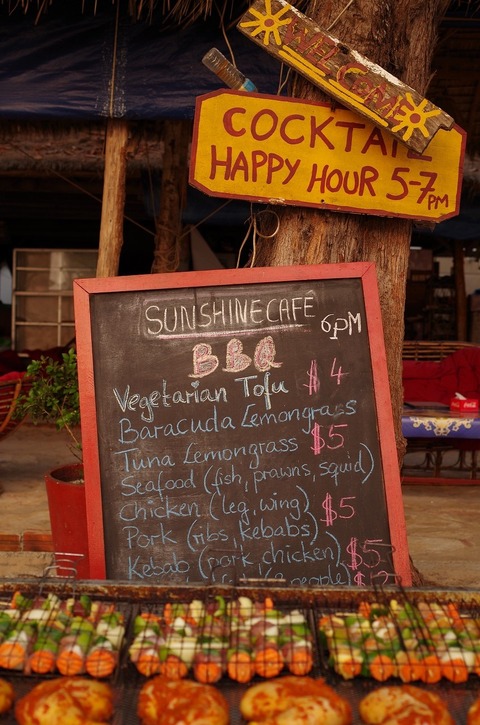 WELCOME
COCKTAIL
HAPPY HOUR 5-7PM
SUNSHINE CAFÉ
6pM
BBQ
Vegetarian Tofu $4
Baracuda Lemongrass
Tuna Lemongrass $5
Seafood (fish, prawns, squid)
Chicken (leg, wing) $5
Pork (ribs, kebabs)
Kebab (pork chicken) $5
people)